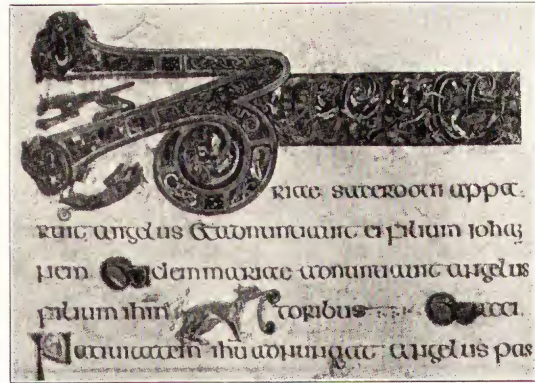 riae sacerdoti appa
ruit angelus & adnuntiavit ei filium iohan
nem Eidem mariae adnuntiavit angelus
filium ihm toribus
Nativitatem ihu adnuntiat angelus pas